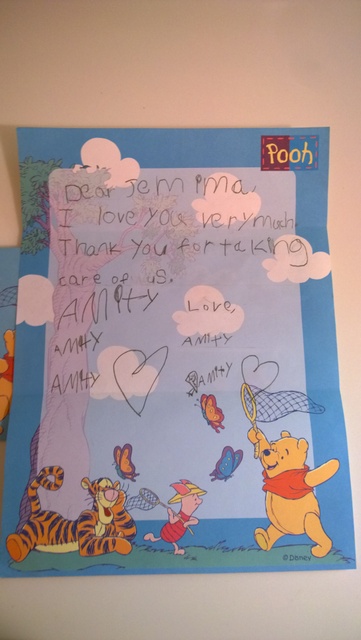 Pooh
Dear Jemima,
I love you very much.
Thank you for taking
care of us.
AMITY
Love,
AMITY
AMITY
AMITY
AMITY
©Disney